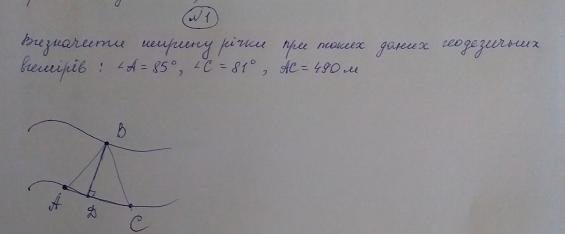 №1
Визначити ширину річки при таких даних геодезичних
вимірів : ∠A = 85°, ∠C = 81°, AC = 490 м
B
A
D
C